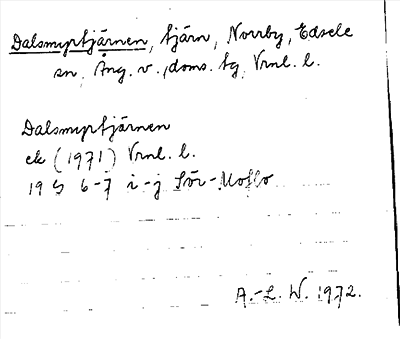 Dalsmyrtjärnen, tjärn, Norrby, Edsele
sn, Ång. v. doms. tg, Vrnl. l.
Dalsmyrtjärnen
ek (1971) Vrnl. l.
19 G 6-7 i-j Sör-Moflo
A.-L. W. 1972.